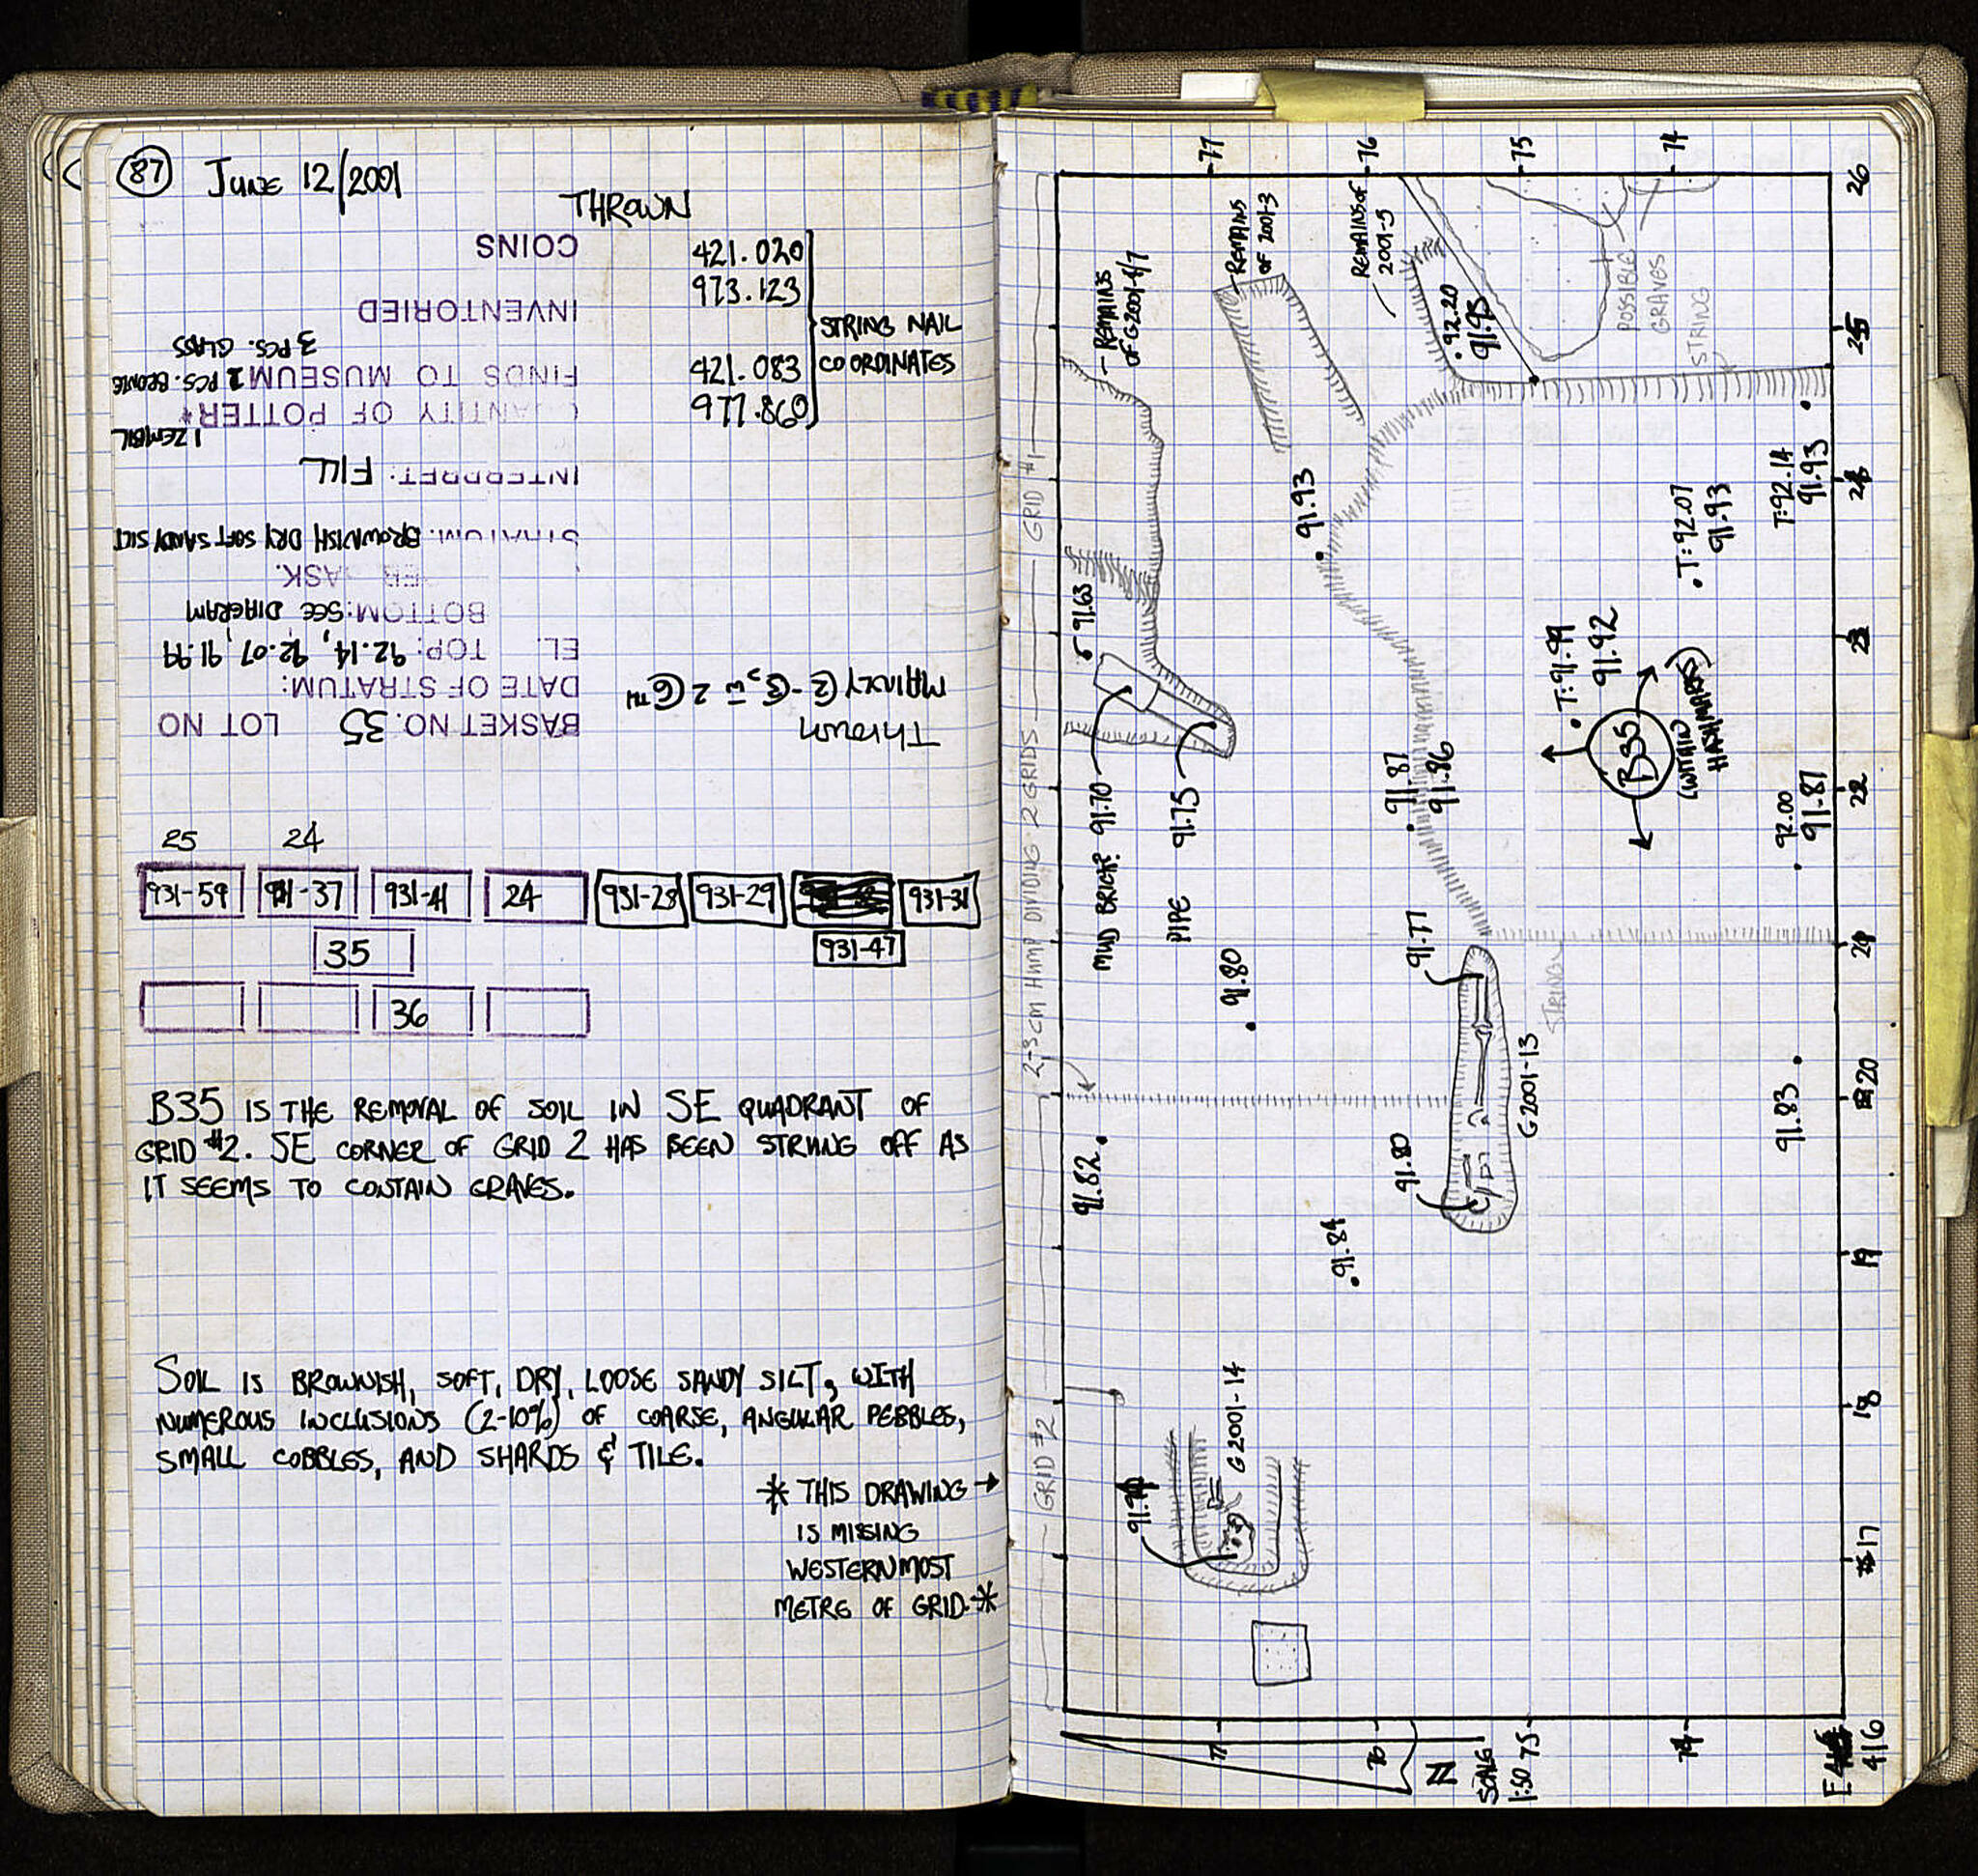 87 JUNE 12/2001
THROWN
421.020
973.123
421.083
977.860
STRING NAIL
COORDINATES
BASKET NO. 35 LOT NO
DATE OF STRATUM:
EL. TOP: 92.14, 92.07, 91.99
BOTTOM: SEE DIAGRAM
STRATUM: BROWNISH DRY SOFT SANDY SILT
INTERPRET: FILL
QUANTITY OF POTTERY
1 ZEMBIL
FINDS TO MUSEUM 2 PCS. BRONZE
3 PCS. GLASS
INVENTORIED
COINS
Thrown
MAINLY
25 24
931-59 931-37 931-41 24 931-28 931-29 931-31
35 931-47
36
B35 IS THE REMOVAL OF SOIL IN SE QUADRANT OF
GRID #2. SE CORNER OF GRID 2 HAS BEEN STRUNG OFF AS
IT SEEMS TO CONTAIN GRAVES.
SOIL IS BROWNISH, SOFT, DRY, LOOSE SANDY SILT, WITH
NUMEROUS INCLUSIONS (2-10%) OF COARSE, ANGULAR PEBBLES,
SMALL COBBLES, AND SHARDS & TILE.
* THIS DRAWING →
IS MISSING
WESTERNMOST
METRE OF GRID.*
GRID #2
2-3 CM HUMP DIVIDING 2 GRIDS
GRID #1
77
76
75
74
REMAINS
OF G2001-4/7
REMAINS
OF 2001-3
REMAINS OF
2001-5
POSSIBLE
GRAVES
STRING
92.20
91.95
91.93
91.63
MUD BRICK? 91.70
PIPE 91.75
91.87
91.86
T: 91.99
91.92
T: 92.07
91.93
T: 92.14
91.93
B35
(WITHIN
HASHMARKS)
92.00
91.87
91.77
91.80
G2001-13
STRING
91.80
91.82
91.84
91.83
G2001-14
26
25
24
23
22
21
20
19
18
17
77
76
75
74
N
SCALE
1:50
E
416